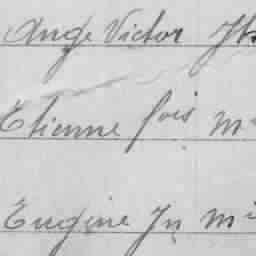 Ange Victor
Etienne fois
Eugène Jn